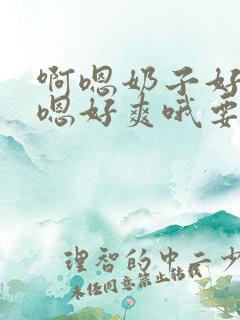 啊嗯奶子好
嗯好爽哦要
理智的中二少
未任同意禁止转载